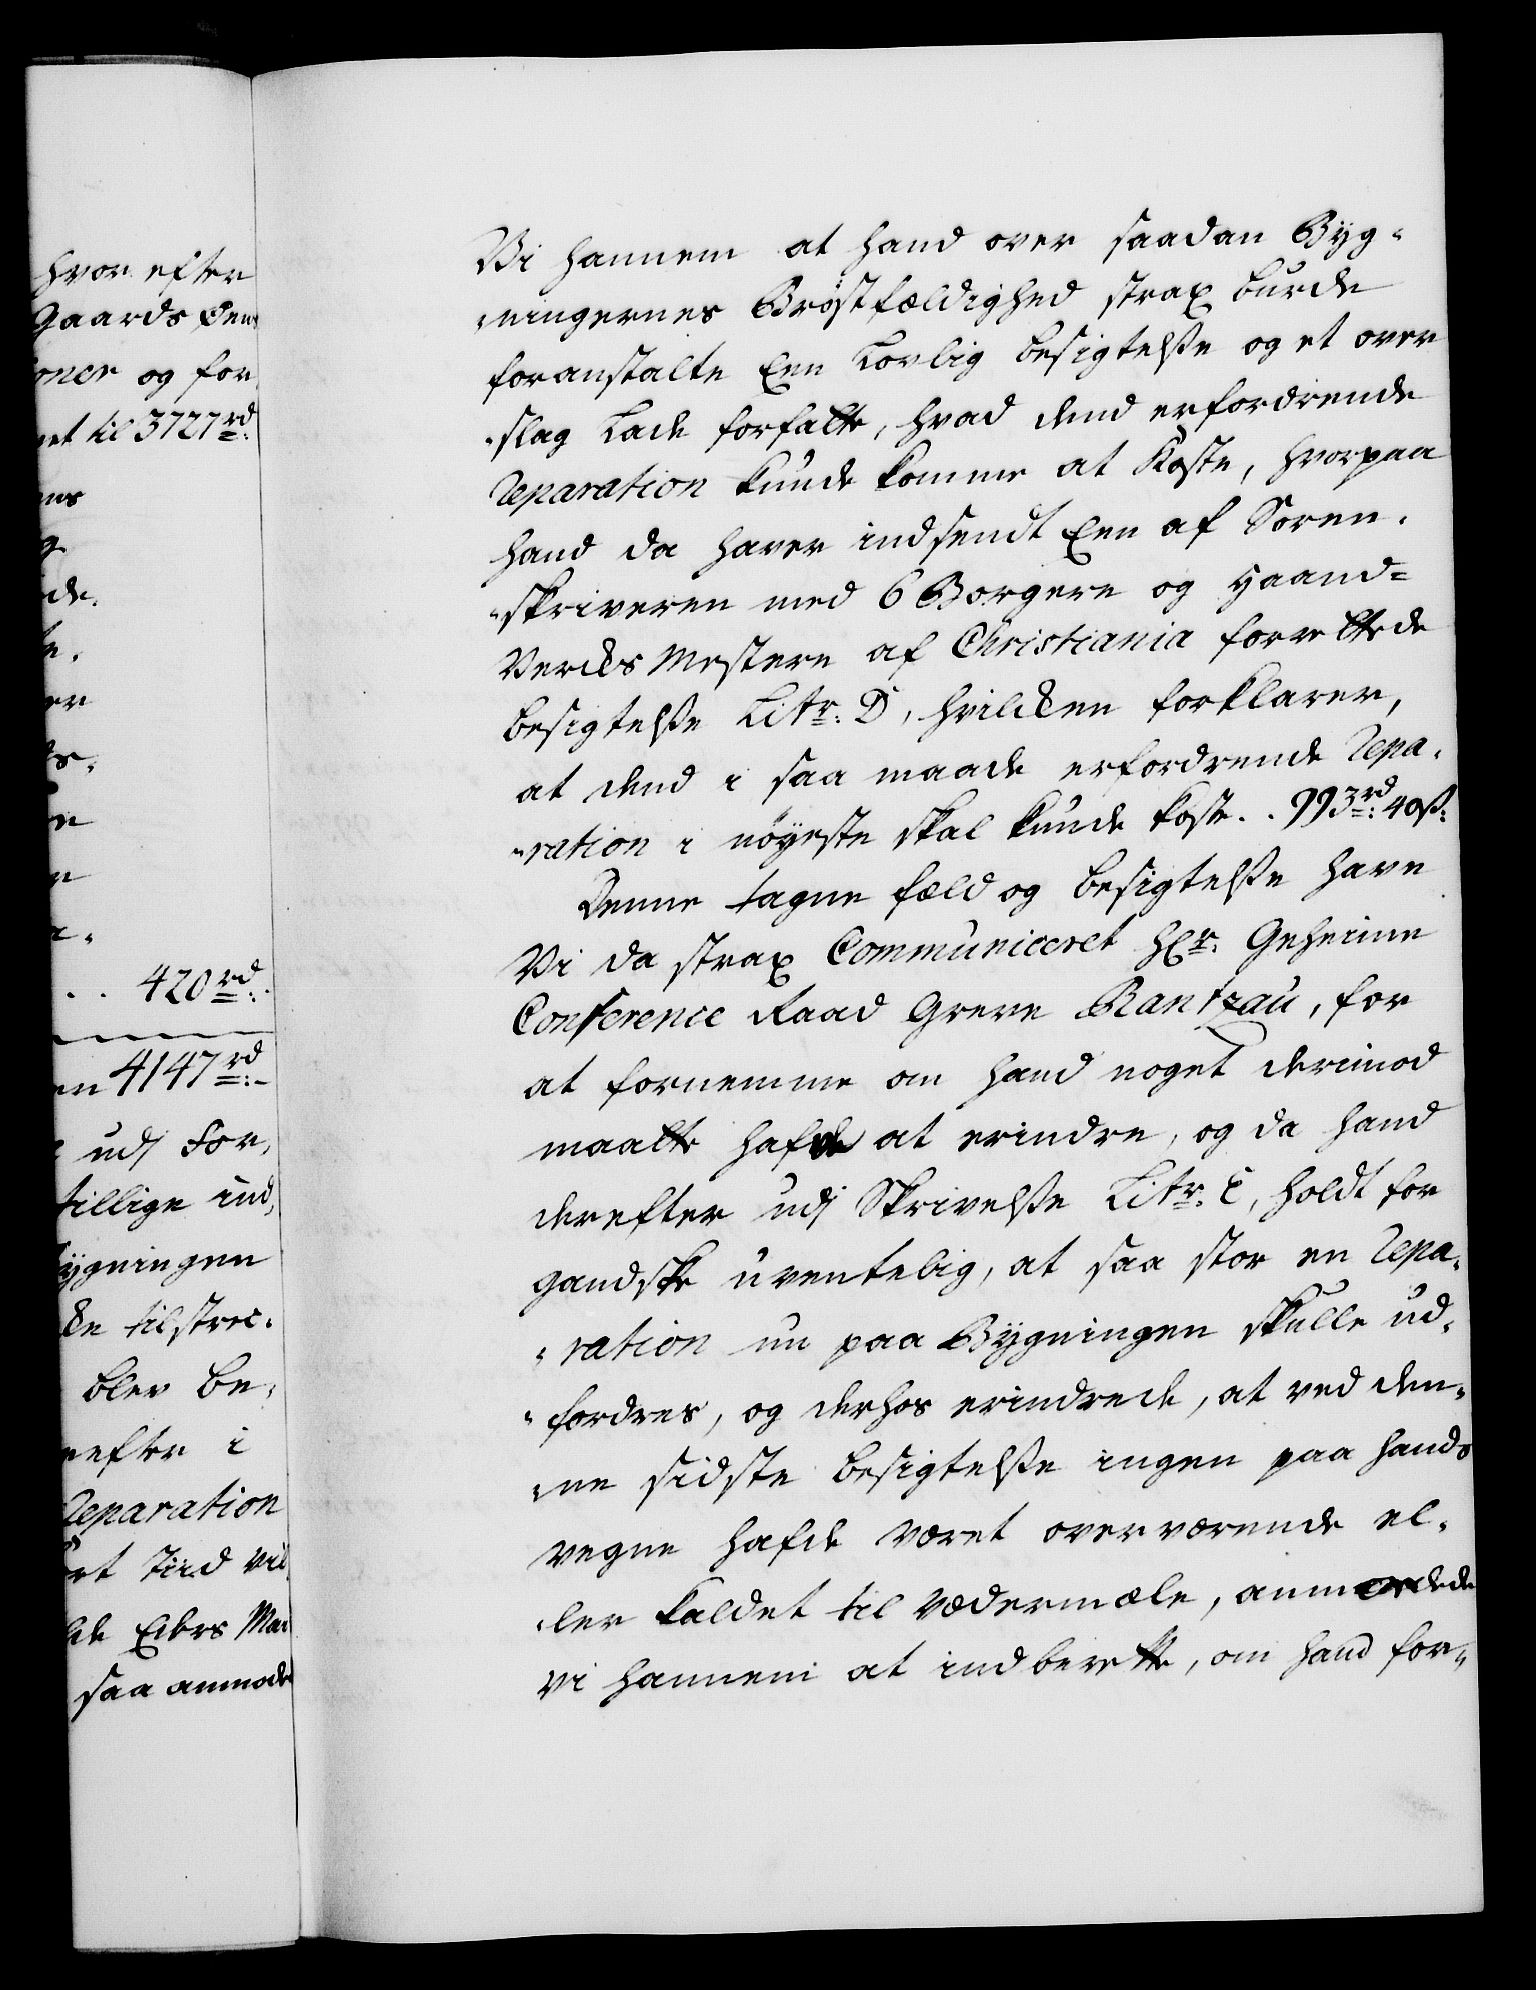 hvor efter
Gaards
og for
et til 3727 rd:
420 rd:
4147 rd:
udj For,
tillige ind,
ygningen
de tilstræc.
blev be,
efter i
Reparation
Tiid vil
saa anmode
Vi hannem at hand over saadan Byg-
ningernes Bröstfældighed strax burde
foranstalte Een Lovlig besigtelsse og et over
slag Lade forfatte, hvad dend erfordrende
reparation kunde komme at Koste, hvorpaa
hand da haver indsendt Een af Soren-
skriveren med 6 Borgere og Haand-
Vercks Mestere af Christiania forrettede
besigtelsse Litr: D, hvilcken forklarer,
at dend i saa maade erfordrende repa-
ration i nöyeste skal kunde koste.. 993 rd: 40 ß:
Denne tagne fæld og besigtelsse have
Vi da strax Communiceret Hr: Geheime
Conference Raad Greve Rantzau, for
at fornemme om hand noget derimod
maatte hafde at erindre, og da hand
derefter udj Skrivelsse Litr: E, holdt for
gandske uventelig, at saa stor en repa-
ration nu paa Bygningen skulle ud-
fordres, og derhos erindrede, at ved den-
ne sidste besigtelsse ingen paa hands
vegne hafde været overværende el-
ler kaldet til vedermæle, anmodede
vi hannem at indberette, om hand for-